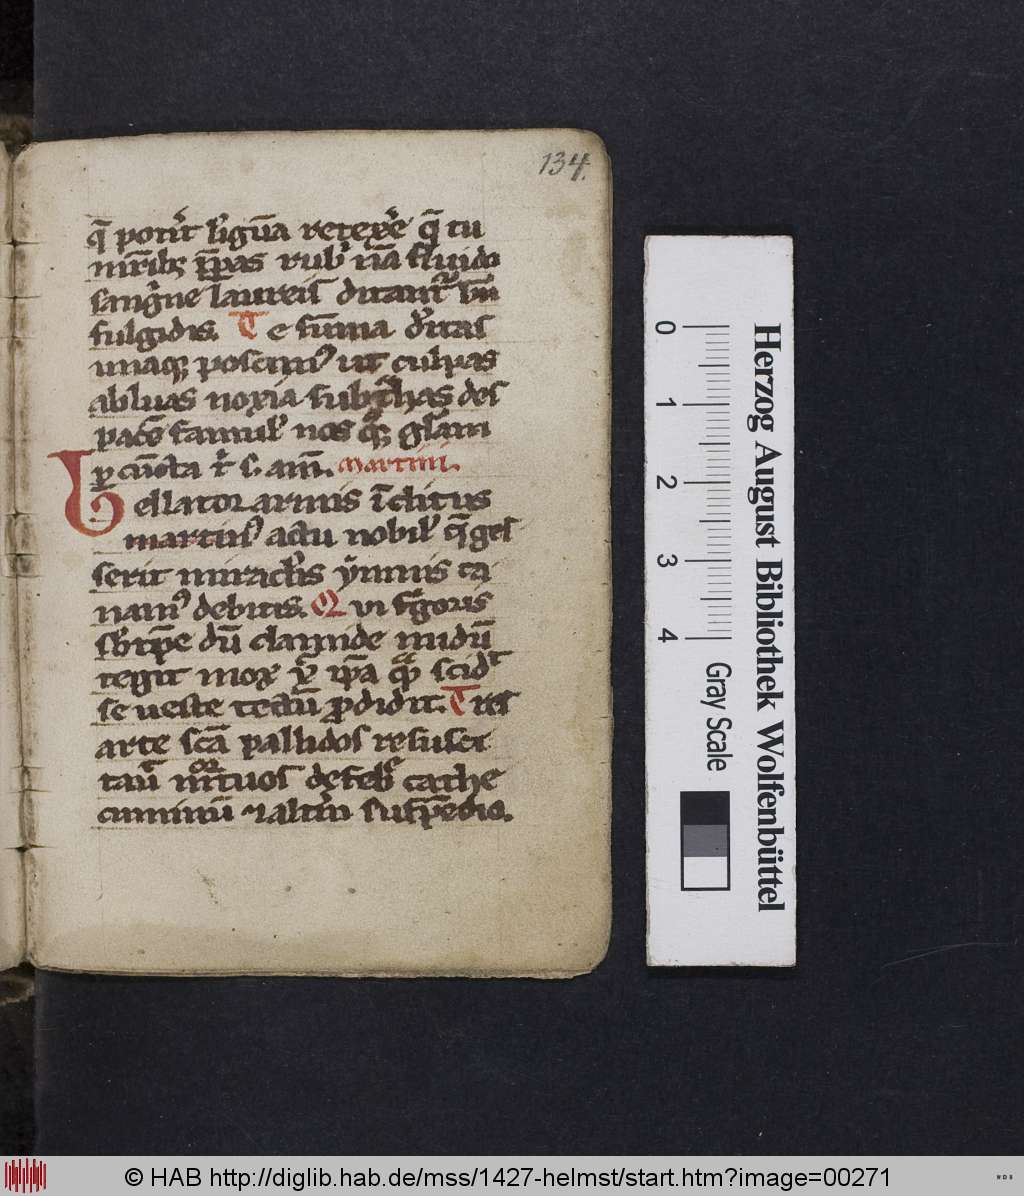 134.
q̄ potͥt lͥgūa retexͤe q̄ tu
mrͥibꝫ p̄pas rubͥ nā fluido
sangͥne laureis ditantͬ bn̄
fulgidis. Te sūma dͥitas
unaqꝫ poscimꝰ ut culpas
abluas noxia subtͥhas des
pacē famulͥ nos qͦꝫ glām
ꝑ cūcta t s. am̄. martini.
Bellator armis īclitus
martinꝰ actu nobilͥ q̄ ges
serit miraclͥis ymnis ca
namꝰ debitis. Qui fͥgoris
sb tp̄e dū clamide nudū
tegit mox xͥ ip̄a qͣꝫ scidͭ
se ueste tectū ꝓdidit. Tres
arte scā pallidos resusci
tauͥ mͦrtuos defcͣ cathe
cuminū ⁊ altͥm suspēdio.
Herzog August Bibliothek Wolfenbüttel
0 1 2 3 4
Gray Scale
© HAB http://diglib.hab.de/mss/1427-helmst/start.htm?image=00271